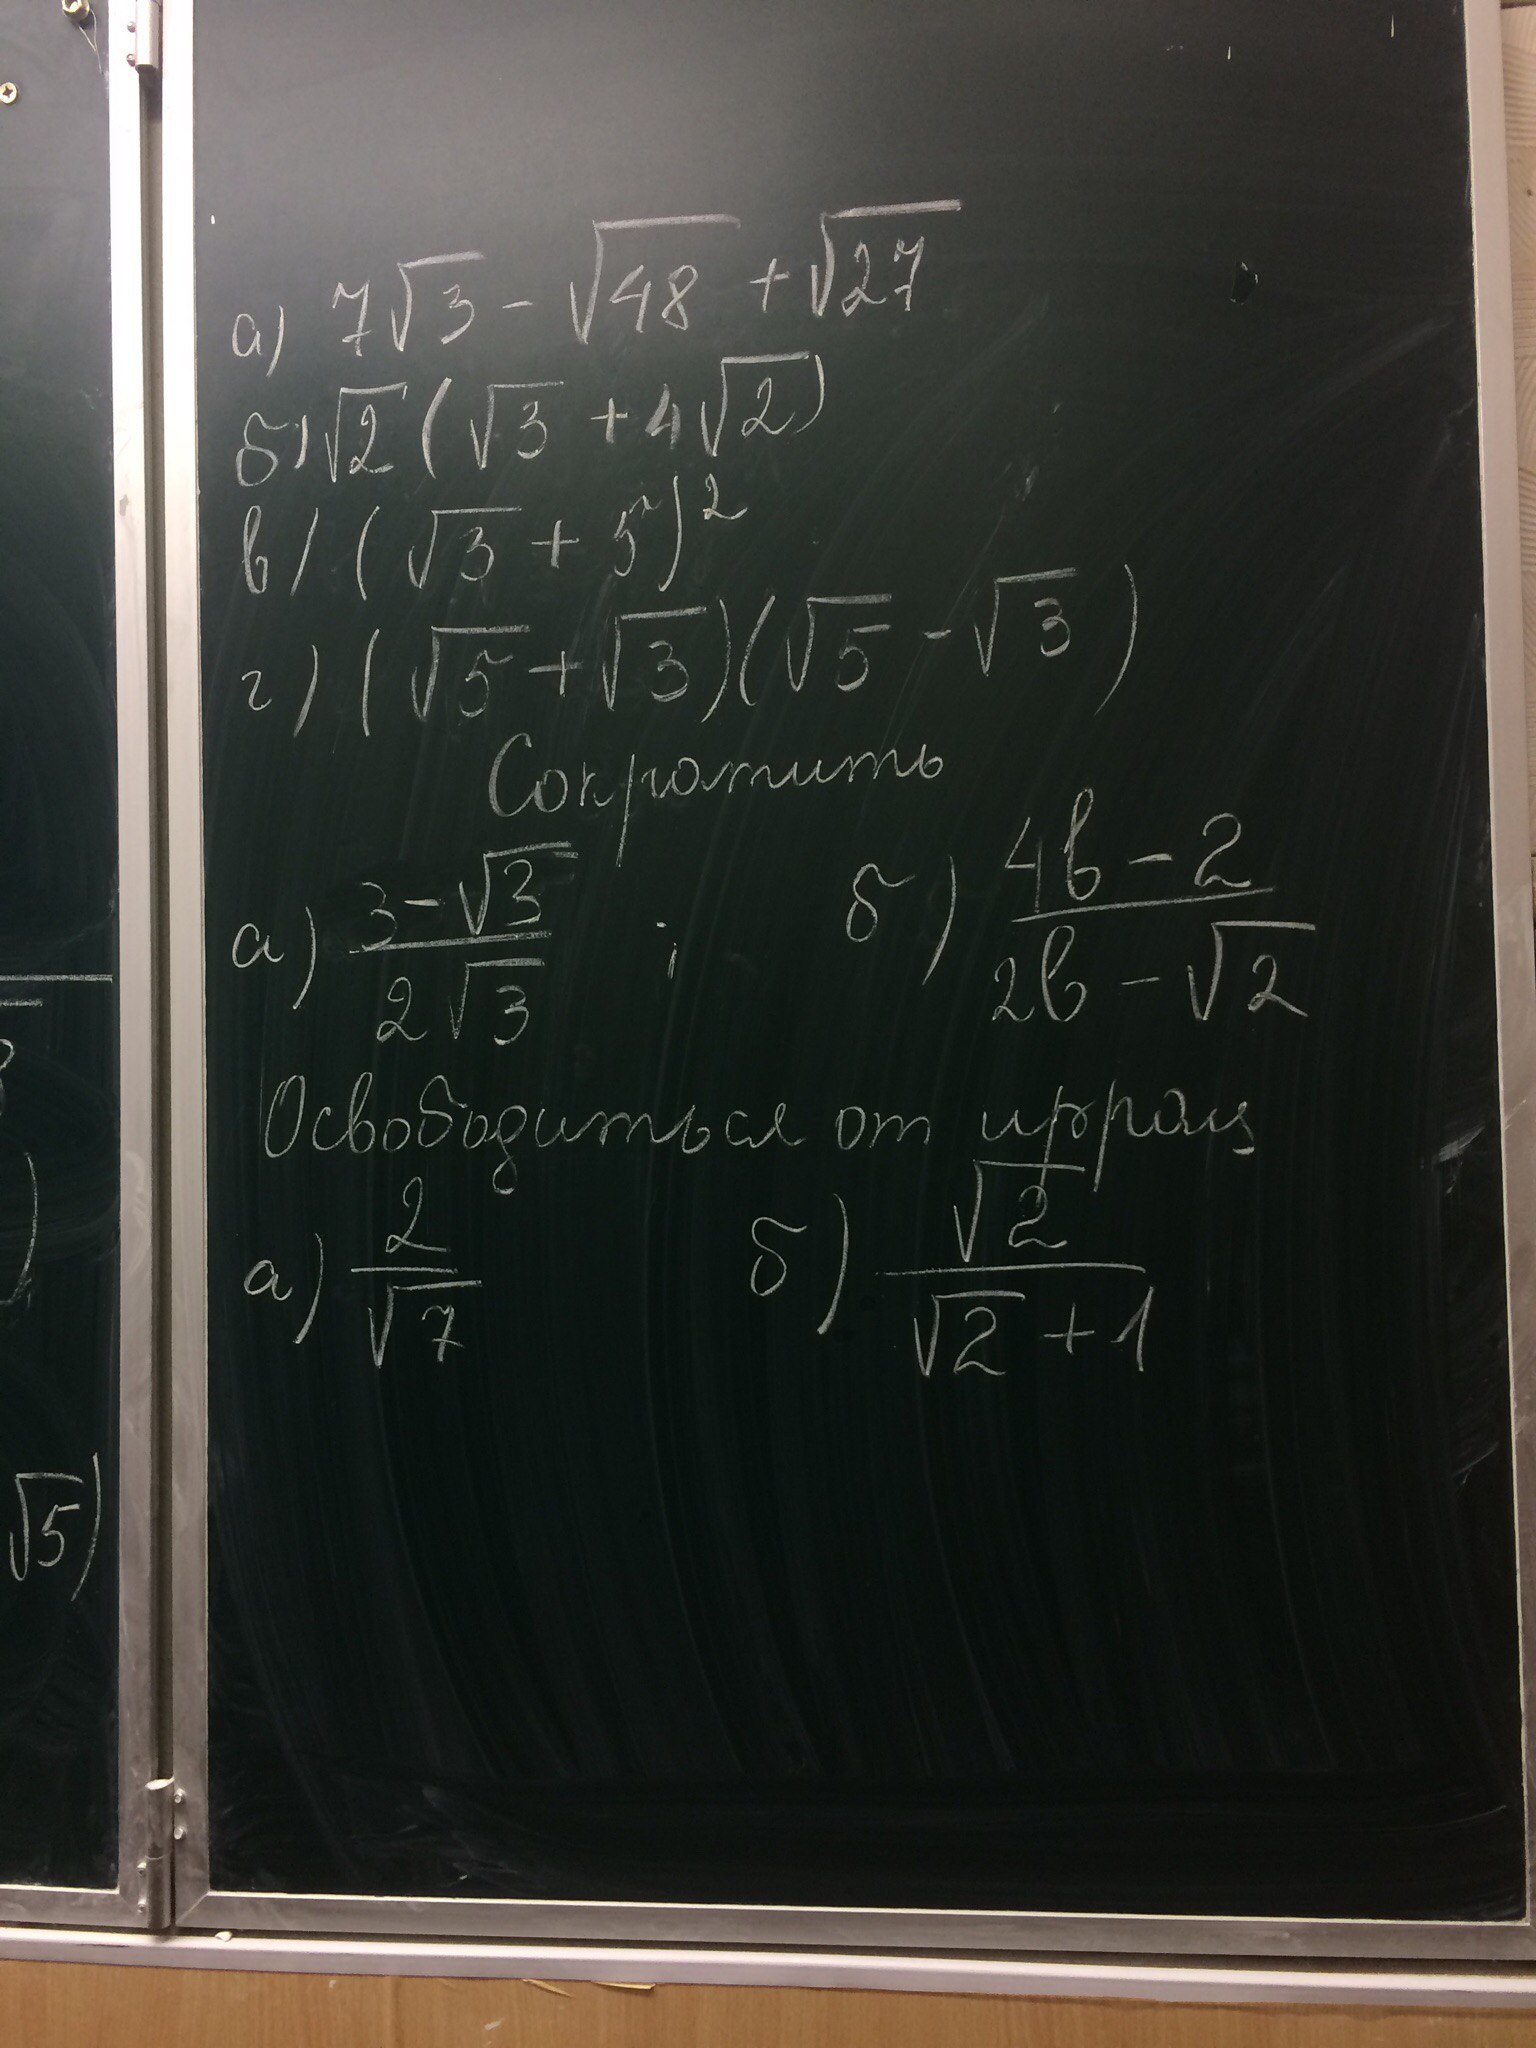 а) 7√3 - √48 + √27
б) √2 (√3 + 4√2)
в) (√3 + 5)²
г) (√5 + √3)(√5 - √3)
Сократить
а) (3-√3)/(2√3) ; б) (4b-2)/(2b-√2)
Освободиться от иррац
а) 2/√7 б) √2/(√2+1)
√5)